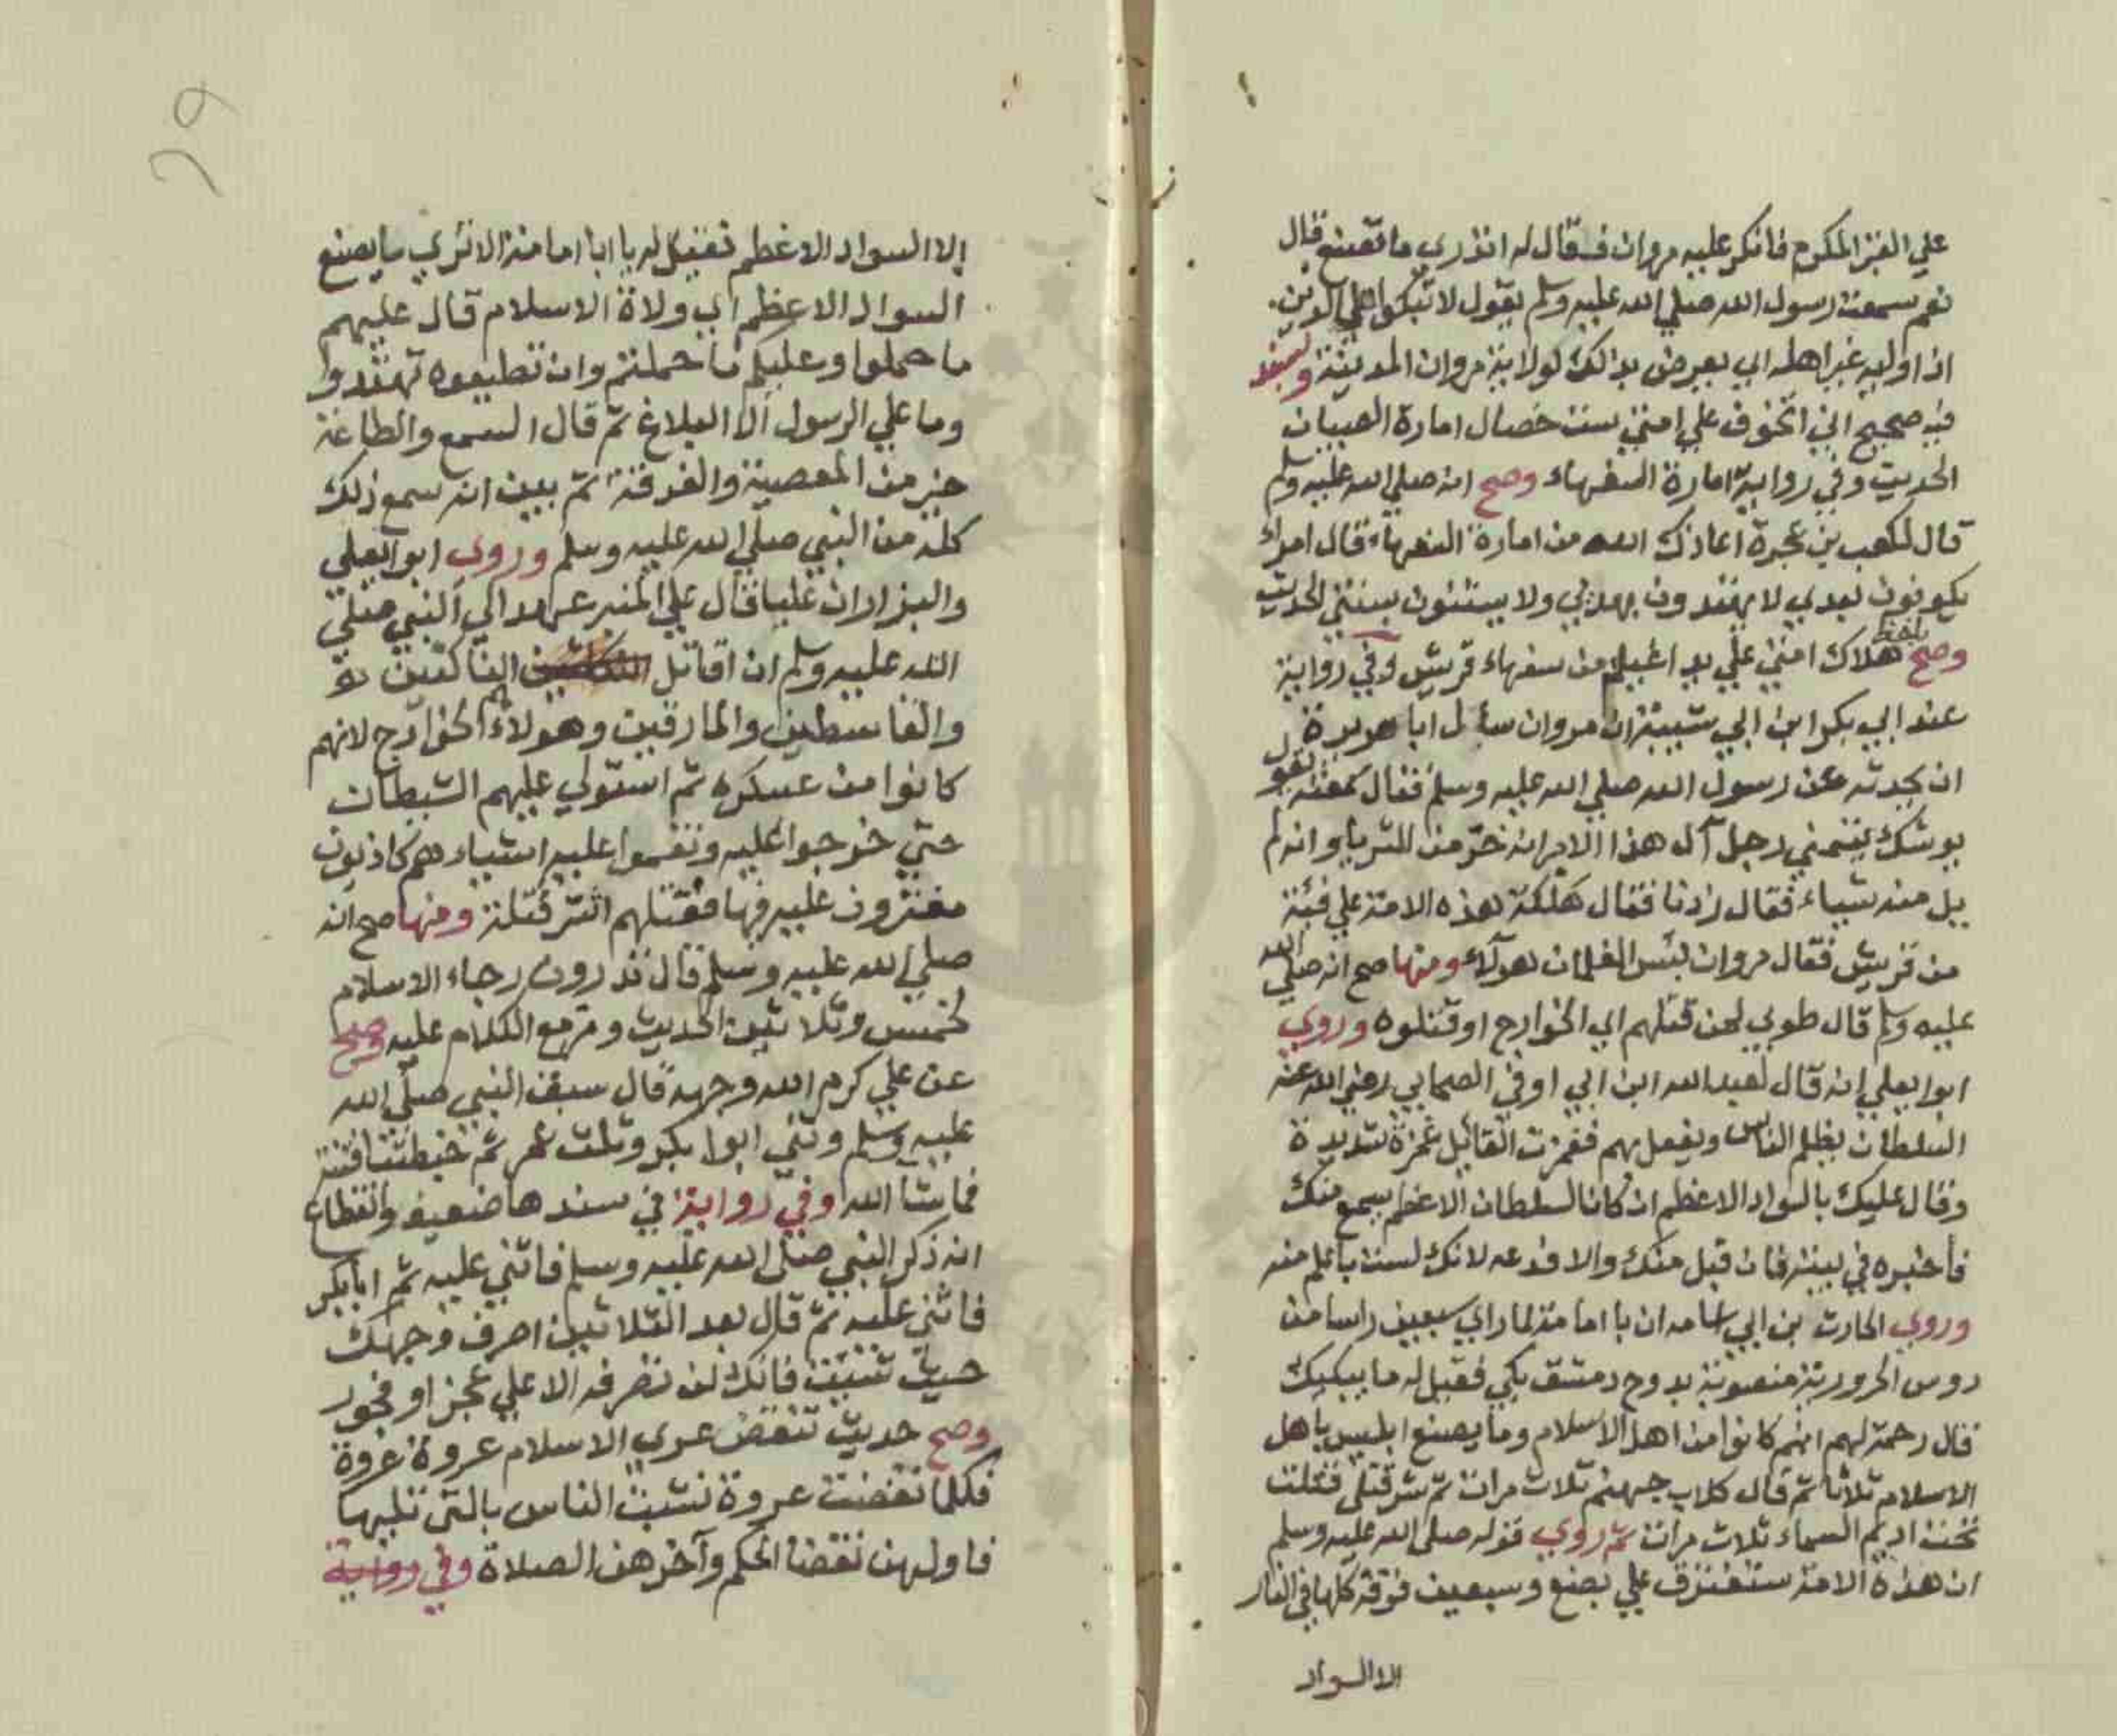 علي القبر المكرم فانكر عليه مروان فقال له اتدري ما تصنع قال
نعم سمعت رسول الله صلي الله عليه وسلم يقول لا تبكوا علي الدين
اذا وليه غير اهله اي يعرض بذالك لولاية مروان المدينة وبسند
فيه صحيح اني اتخوف علي امتي ست خصال امارة الصبيان
الحديث وفي رواية امارة السفهاء وصح انه صلي الله عليه وسلم
قال لكعب بن عجرة اعاذك الله من امارة السفهاء قال امراء
يكونون بعدي لا يهتدون بهديي ولا يستنون بسنتي الحديث
وصح بلفظ هلاك امتي علي يد اغيلم من سفهاء قريش وفي رواية
عند ابي بكر ابن ابي شيبة ان مروان سأل ابا هريرة
ان يحدثه عن رسول الله صلي الله عليه وسلم فقال سمعته يقول
يوشك يتمني رجل آل هذا الامر انه خر من الثريا وانه لم
يل منه شياء فقال زدنا فقال هلكة هذه الامة علي فئة
من قريش فقال مروان بئس الغلمان هولاء ومنها صح انه صلي الله
عليه وسلم قال طوبي لمن قتلهم اي الخوارج او قتلوه وروي
ابوا يعلي انه قال لعبد الله ابن ابي اوفي الصحابي رضي الله عنه
السلطان يظلم الناس ويفعل بهم فغمزت القائل غمزة شديدة
وقال عليك بالسواد الاعظم ان كان السلطان الاعظم يسمع منك
فأخبره في بيته فان قبل منك والا فدعه لانك لست باعلم منه
وروي الحارث بن ابي اسامه ان با امامة لما راي سبعين راسا من
روس الحرورية منصوبة بدوح دمشق بكي فقيل له ما يبكيك
قال رحمة لهم انهم كانوا من اهل الاسلام وما يصنع ابليس باهل
الاسلام ثلاثا ثم قال كلاب جهنم ثلاث مرات ثم شر قتلي قتلت
تحت اديم السماء ثلاث مرات ثم روي قوله صلي الله عليه وسلم
ان هذه الامة ستفترق علي بضع وسبعين فرقة كلها في النار
الا السواد
الا السواد الاعظم فقيل له يا ابا امامة الا تري ما يصنع
السواد الاعظم اي ولاة الاسلام قال عليهم
ما حملوا وعليكم ما حملتم وان تطيعوه تهتدوا
وما علي الرسول الا البلاغ ثم قال السمع والطاعة
خير من المعصية والفرقة ثم بين انه سمع ذلك
كله من النبي صلي الله عليه وسلم وروي ابوا يعلي
والبزار ان عليا قال علي المنبر عهد الي النبي صلي
الله عليه وسلم ان اقاتل الناكثين
والقاسطين والمارقين وهولاء هم الخوارج لانهم
كانوا من عسكره ثم استولي عليهم الشيطان
حتي خرجوا عليه ونقموا عليه اشياء هم كاذبون
مفترون عليه فيها فقتلهم اشر قتلة ومنها صح انه
صلي الله عليه وسلم قال تدرون رحاء الاسلام
لخمس وثلاثين الحديث ومر مع الكلام عليه وصح
عن علي كرم الله وجهه قال سبق النبي صلي الله
عليه وسلم وثني ابوا بكر وثلث عمر ثم خبطتنا فتنة
فما شا الله وفي رواية في سندها ضعيف وانقطاع
انه ذكر النبي صلي الله عليه وسلم فاثني عليه ثم ابا بكر
فاثني عليه ثم قال بعد الثلاثين اصرف وجهك
حيث شئت فانك لن تصرفه الا علي عجز او فجور
وصح حديث تنقض عري الاسلام عروة عروة
فكلما نقضت عروة تشبث الناس بالتي تليها
فاولهن نقضا الحكم وآخرهن الصلاة وفي رواية